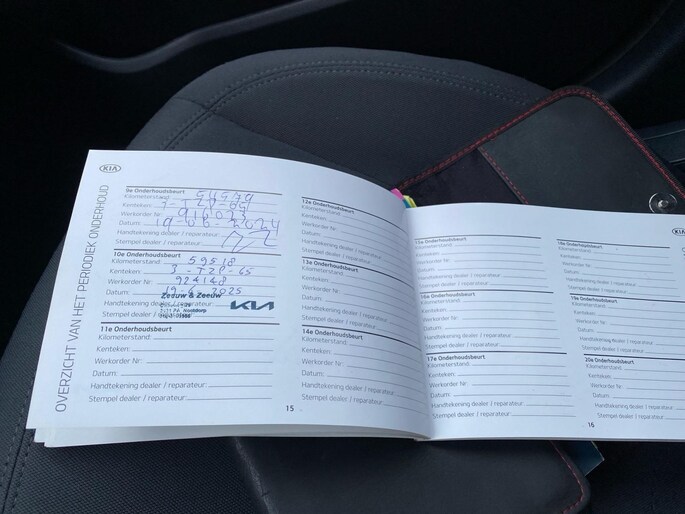 KIA
OVERZICHT VAN HET PERIODIEK ONDERHOUD
9e Onderhoudsbeurt
Kilometerstand:
Kenteken:
Werkorder Nr: 916023
Datum: 19-06-2024
Handtekening dealer / reparateur:
Stempel dealer / reparateur:
10e Onderhoudsbeurt
Kilometerstand: 59518
Kenteken: 3-TZP-65
Werkorder Nr: 924148
Datum: 19-6-2025
Zeeuw & Zeeuw
Handtekening dealer / reparateur:
KIA
Stempel dealer / reparateur:
11e Onderhoudsbeurt
Kilometerstand:
Kenteken:
Werkorder Nr:
Datum:
Handtekening dealer / reparateur:
Stempel dealer / reparateur:
12e Onderhoudsbeurt
Kilometerstand:
Kenteken:
Werkorder Nr:
Datum:
Handtekening dealer / reparateur:
Stempel dealer / reparateur:
13e Onderhoudsbeurt
Kilometerstand:
Kenteken:
Werkorder Nr:
Datum:
Handtekening dealer / reparateur:
Stempel dealer / reparateur:
14e Onderhoudsbeurt
Kilometerstand:
Kenteken:
Werkorder Nr:
Datum:
Handtekening dealer / reparateur:
Stempel dealer / reparateur:
15
KIA
Onderhoudsbeurt
Kilometerstand:
Kenteken:
Werkorder Nr:
Datum:
Handtekening dealer / reparateur:
Stempel dealer / reparateur:
16e Onderhoudsbeurt
Kilometerstand:
Kenteken:
Werkorder Nr:
Datum:
Handtekening dealer / reparateur:
Stempel dealer / reparateur:
17e Onderhoudsbeurt
Kilometerstand:
Kenteken:
Werkorder Nr:
Datum:
Handtekening dealer / reparateur:
Stempel dealer / reparateur:
Onderhoudsbeurt
Kilometerstand:
Kenteken:
Werkorder Nr:
Datum:
Handtekening dealer / reparateur:
Stempel dealer / reparateur:
19e Onderhoudsbeurt
Kilometerstand:
Kenteken:
Werkorder Nr:
Datum:
Handtekening dealer / reparateur:
Stempel dealer / reparateur:
20e Onderhoudsbeurt
Kilometerstand:
Kenteken:
Werkorder Nr:
Datum:
Handtekening dealer / reparateur:
Stempel dealer / reparateur:
16